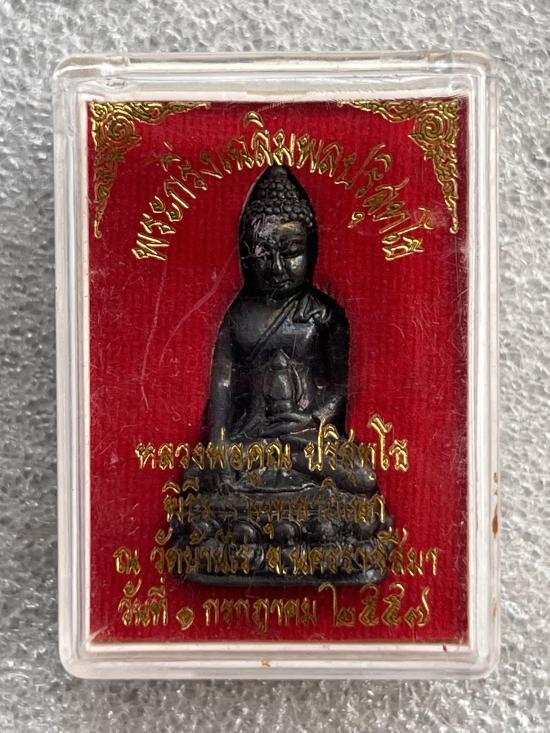 พระกริ่งเฉลิมพลปริสุทโธ
หลวงพ่อคูณ ปริสุทฺโธ
พิธีพุทธาภิเษก
ณ วัดบ้านไร่ จ.นครราชสีมา
วันที่ ๑ กรกฎาคม ๒๕๕๗